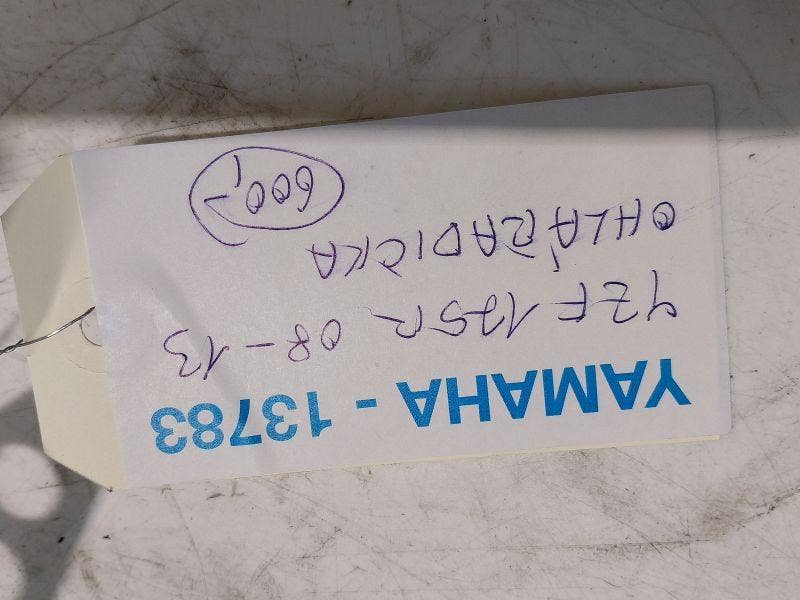 YAMAHA - 13783
YZF 125R 08-13
OHLÁRADICKA
600,-